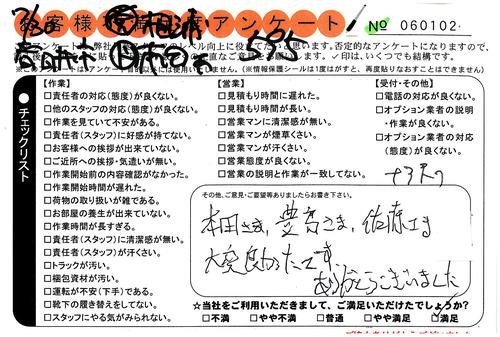 お客様満足度アンケート
№ 060102
このアンケートは、弊社
レベル向上に役立てたいと思います。否定的なアンケートになりますので、
直なご意見をお願いします。✓印は、いくつでも結構です。
(情報保護シールは1度はがすと、再度貼りなおすことはできません)
●チェックリスト
【作業】
□責任者の対応(態度)が良くない。
□他のスタッフの対応(態度)が良くない。
□作業を見ていて不安がある。
□責任者(スタッフ)に好感が持てない。
□お客様への挨拶が出来ていない。
□ご近所への挨拶・気遣いが無い。
□作業開始前の内容確認がなかった。
□作業開始時間が遅れた。
□荷物の取り扱いが雑である。
□お部屋の養生が出来ていない。
□作業時間が長すぎる。
□責任者(スタッフ)に清潔感が無い。
□責任者(スタッフ)が汗くさい。
□トラックが汚い。
□梱包資材が汚い。
□運転が不安(下手)である。
□靴下の履き替えをしてない。
□スタッフにやる気がみられない。
【営業】
□見積もり時間に遅れた。
□見積もり時間が長い。
□営業マンに清潔感が無い。
□営業マンが煙草くさい。
□営業マンが汗くさい。
□営業態度が良くない。
□営業の説明と作業が一致してない。
【受付・その他】
□電話の対応が良くない。
□オプション業者の説明
・作業が良くない。
□オプション業者の対応
(態度)が良くない。
その他、ご意見・ご要望等ありましたらお書き下さい。
本田さま、豊吉さま、佐藤さま
大変良かったです。
ありがとうございました
☆当社をご利用いただきまして、ご満足いただけたでしょうか?
□不満 □やや不満 □普通 □やや満足 ☑満足